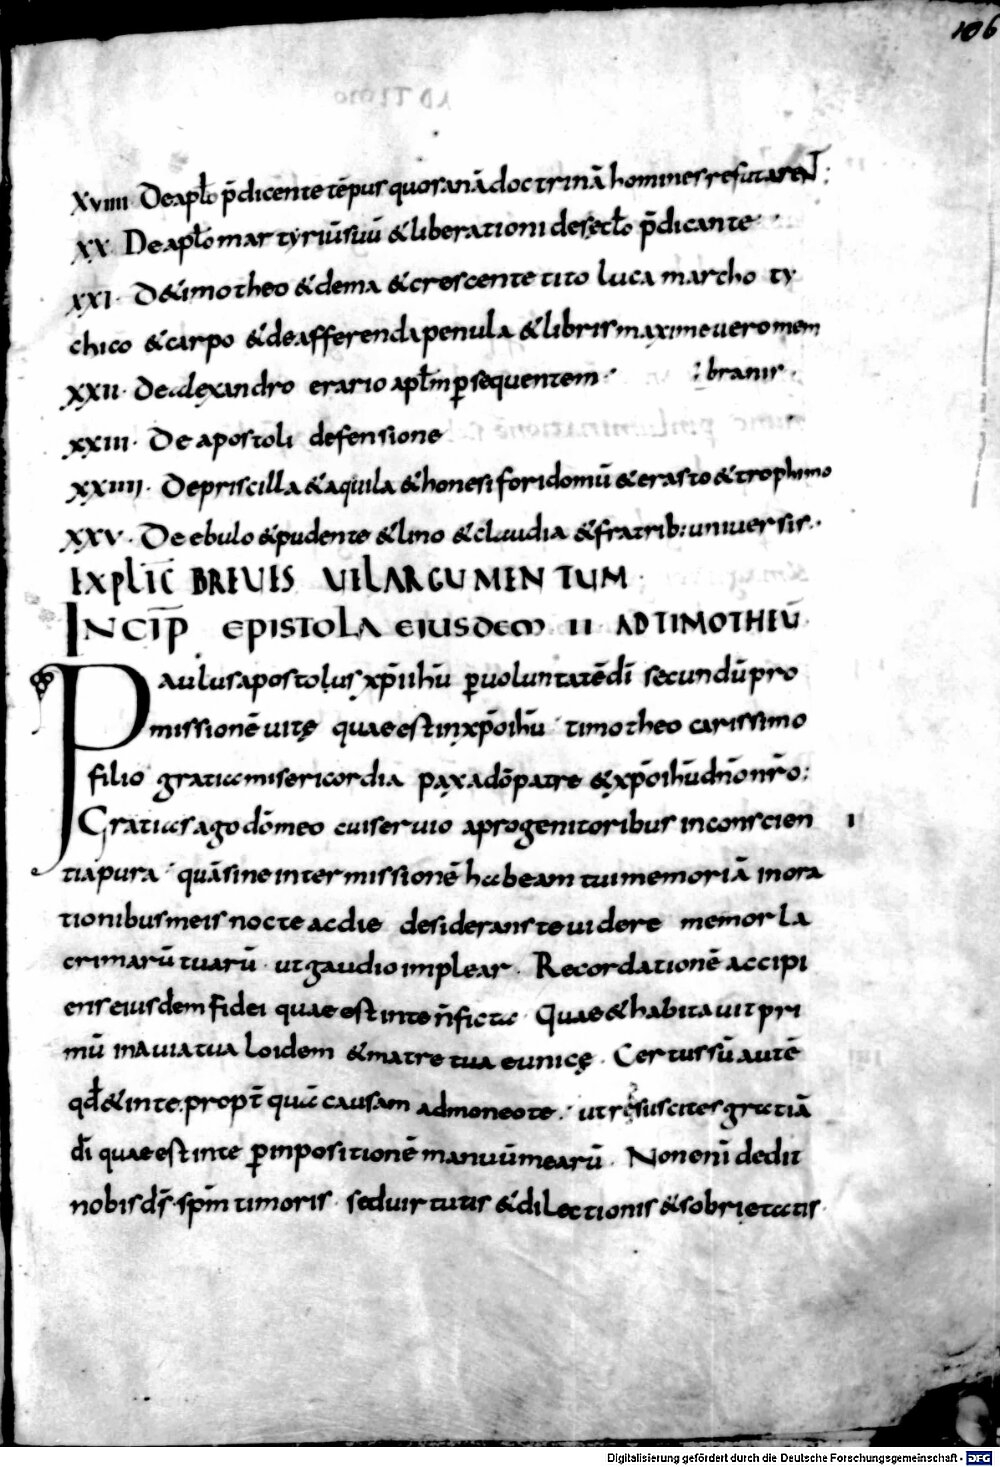 106
XVIIII De apło p̄dicente tēpus quo sanā doctrinā homines refutarent:
XX De apło martyriū suū & liberationi de sęcło p̄dicante
XXI· D&imotheo & dema & crescente tito luca marcho ty
chico & carpo & de afferenda penula & libris maxime uero mem
XXII· De alexandro erario apłm ꝑsequentem· :branis·
XXIII· De apostoli defensione
XXIIII· De priscilla & aquila & honesifori domū & erasto & trophimo
XXV· De ebulo & pudente & lino & claudia & fratrib: uniuersis·
EXPLIC̄ BREUES UEL ARGUMENTUM·
INCIP̄ EPISTOLA EIUSDEM II AD TIMOTHEŪ
Paulus apostolus xp̄i ih̄u ꝑ uoluntatē dī secundū pro
missionē uitę quae est in xp̄o ih̄u timotheo carissimo
filio gratia misericordia pax a dō patre & xp̄o ih̄u dn̄o nr̄o:
Gratias ago dō meo cui seruio a progenitoribus in conscien I
tia pura· quā sine intermissionē habeam tui memoriā in ora
tionibus meis nocte ac die desiderans te uidere memor la
crimarū tuarū· ut gaudio implear· Recordationē accipi
ens eius dem fidei quae est in te n̄ ficta Quae & habitauit pri
mū in auia tua loidem & matre tua eunicę· Certus sū autē
qd̄ & in te· propt̄ quā causam admoneo te· ut resuscites gratiā
dī quae est in te ꝑ inpositionē manuū mearū· Non enī dedit
nobis ds̄ sp̄m timoris· sed uirtutis & dilectionis & sobrietatis·
Digitalisierung gefördert durch die Deutsche Forschungsgemeinschaft - DFG